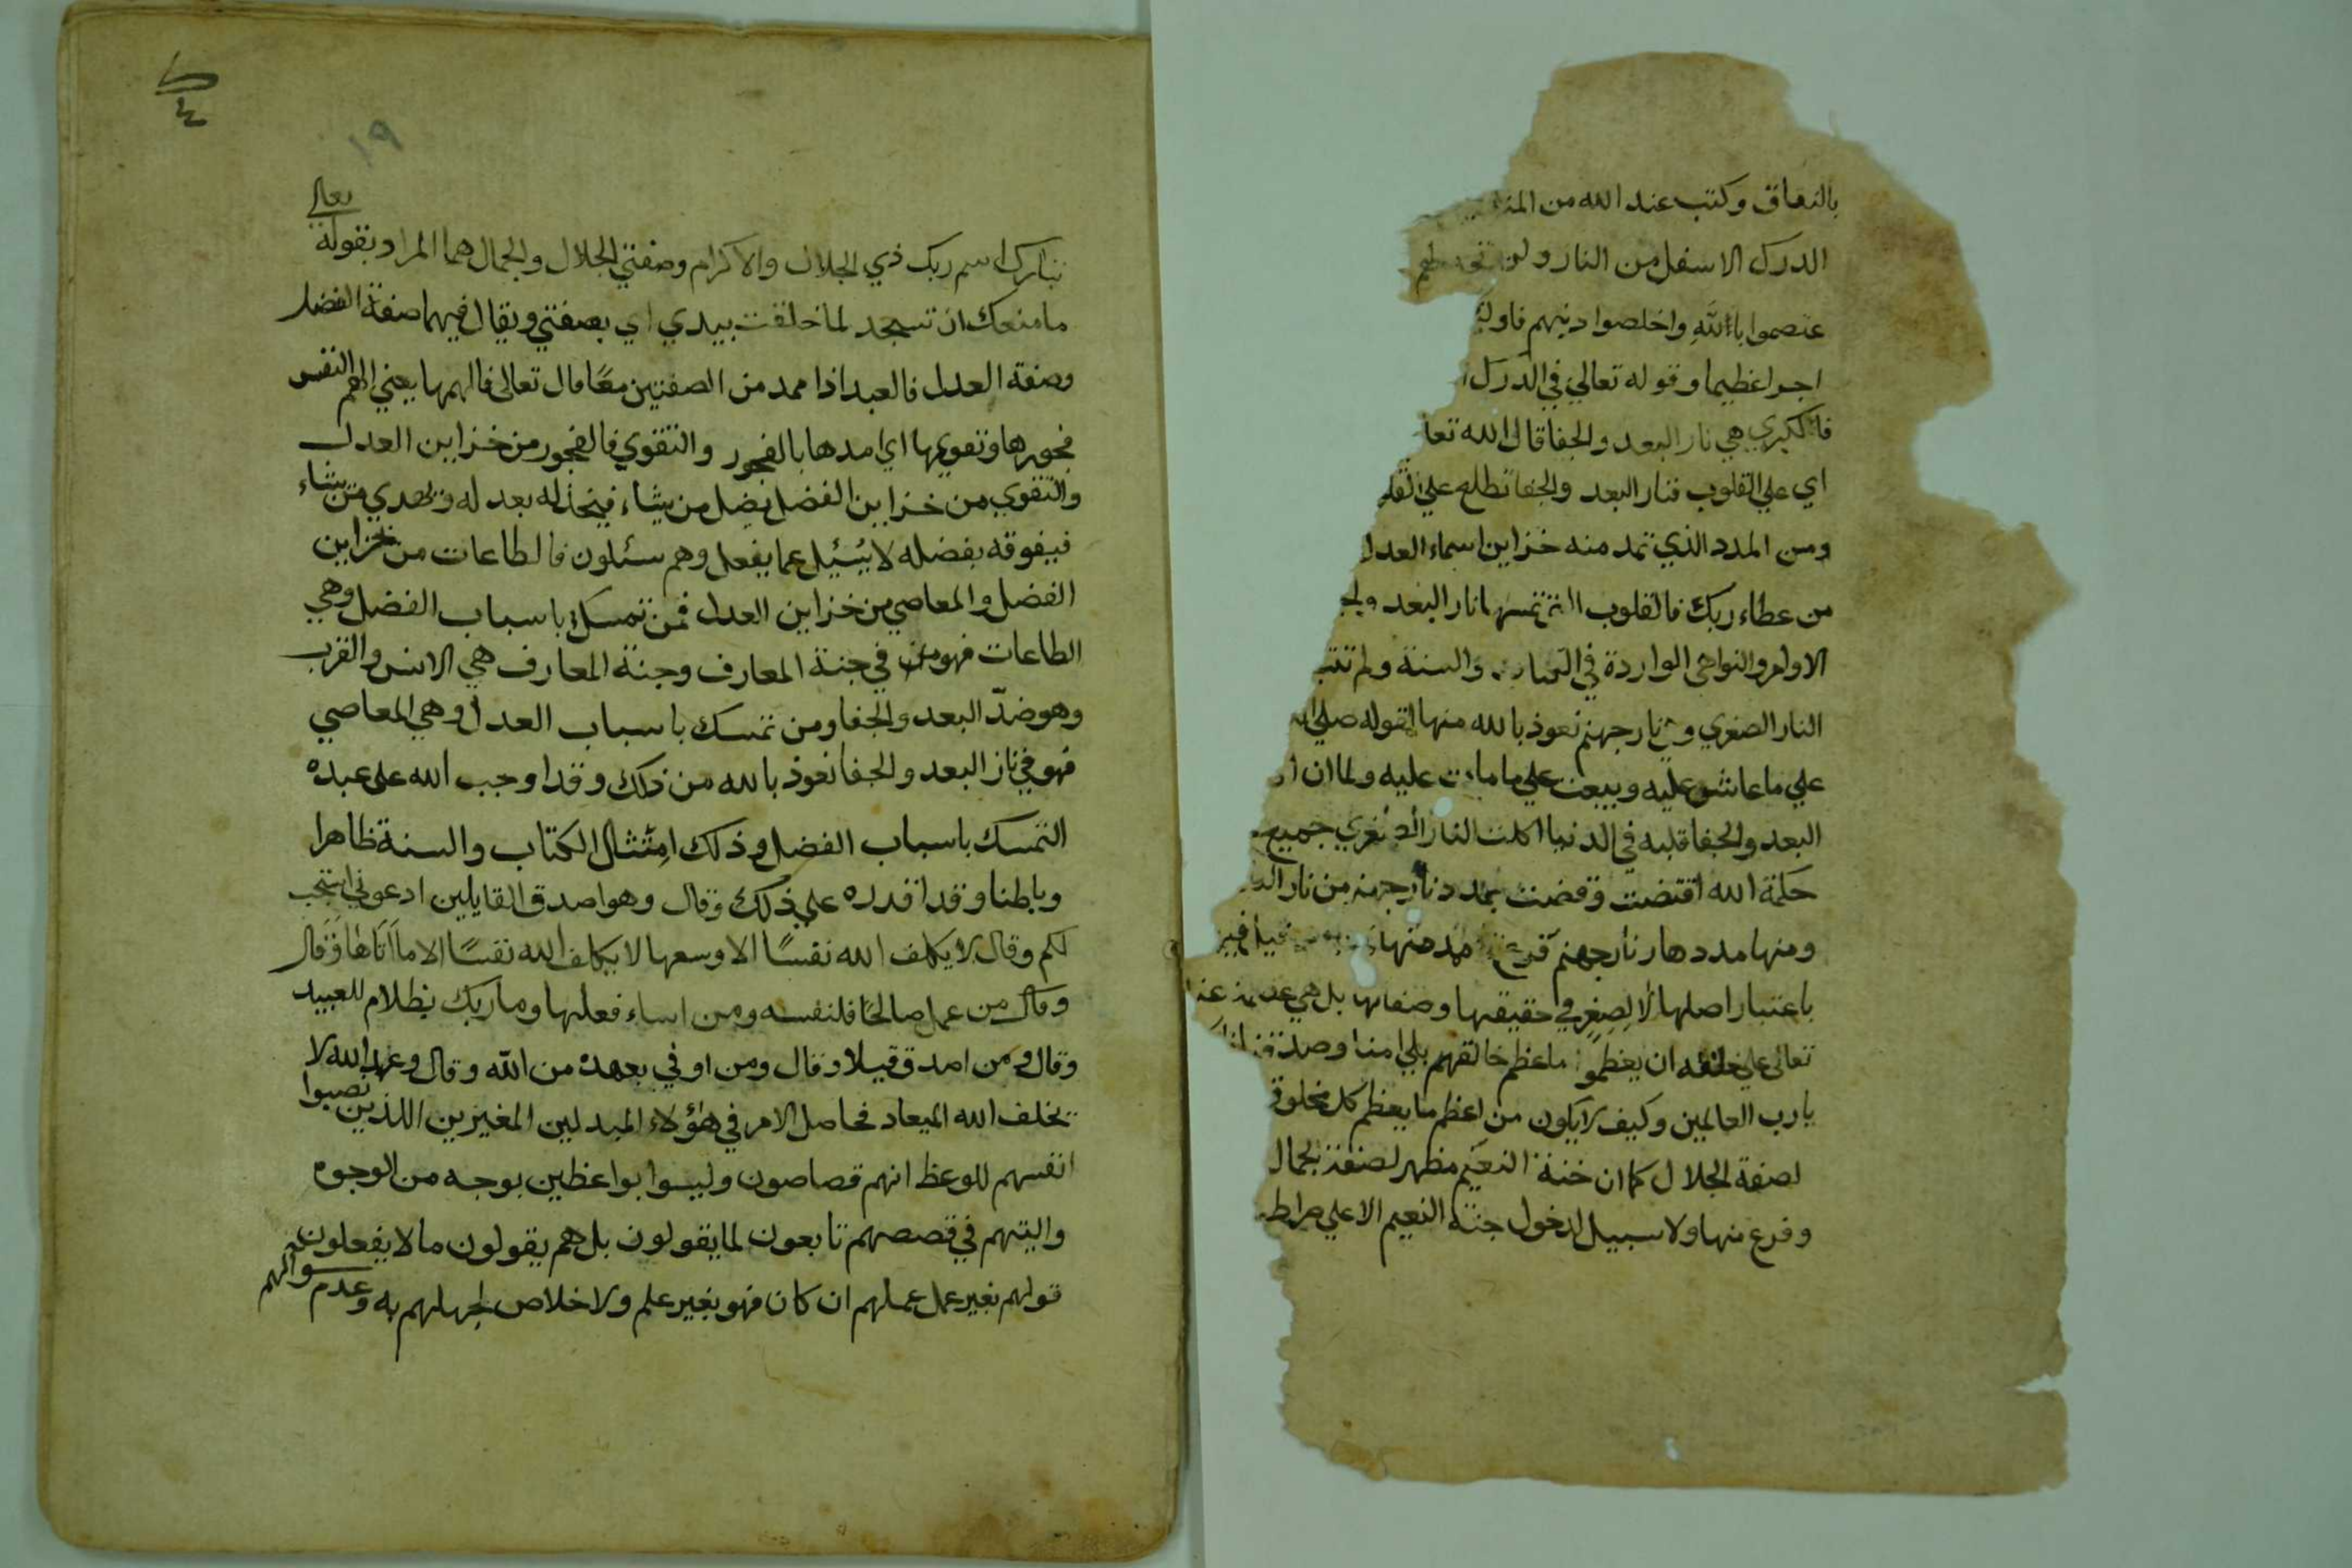 بالنفاق وكتب عند الله من
الدرك الاسفل من النار ولن تجد لهم
عتصموا بالله واخلصوا دينهم فاولئ
اجرا عظيما وقوله تعالي في الدرك
فالكبري هي نار البعد والجفا قال الله تعا
اي علي القلوب فنار البعد والجفا تطلع علي القلو
ومن المدد الذي تمد منه خزاين اسماء العدل
من عطاء ربك فالقلوب التي تمسها نار البعد والج
الاوامر والنواهي الواردة في الكتاب والسنة ولم تتب
النار الصغري وهي نار جهنم نعوذ بالله منها لقوله صلي الله
علي ما عاش عليه ويبعث علي ما مات عليه ولما ان
البعد والجفا قلبه في الدنيا اكلت النار الصغري جميع
حكمة الله اقتضت وقضت بمدد نار جهنم من نار
ومنها مددها ونار جهنم فرع منها
باعتبار اصلها لا لصغر في حقيقتها وصفاتها بل هي
تعالى علي خلقه ان يعظموا ما عظم خالقهم بلي امنا وصدقنا
يا رب العالمين وكيف لا يكون من اعظم ما يعظم كل مخلوق
لصفة الجلال كما ان جنة النعيم مظهر لصفة الجمال
وفرع منها ولا سبيل لدخول جنة النعيم الا علي صراط
١٩
تبارك اسم ربك ذي الجلال والاكرام وصفتي الجلال والجمال هما المراد بقوله تعالي
ما منعك ان تسجد لما خلقت بيدي اي بصفتي ويقال فيهما صفة الفضل
وصفة العدل فالعبد اذا ممد من الصفتين معًا قال تعالى فالهمها يعني الهم النفس
فجورها وتقويها اي امدها بالفجور والتقوي فالفجور من خزاين العدل
والتقوي من خزاين الفضل يضل من يشاء فيخذله بعدله ويهدي من يشاء
فيوفقه بفضله لا يسئل عما يفعل وهم يسئلون فالطاعات من خزاين
الفضل والمعاصي من خزاين العدل فمن تمسك باسباب الفضل وهي
الطاعات فهو في جنة المعارف وجنة المعارف هي الانس والقرب
وهو ضدّ البعد والجفا ومن تمسك باسباب العدل وهي المعاصي
فهو في نار البعد والجفا نعوذ بالله من ذلك وقد اوجب الله على عبده
التمسك باسباب الفضل وذلك امتثال الكتاب والسنة ظاهرا
وباطنا وقد اقدره علي ذلك وقال وهو اصدق القايلين ادعوني استجب
لكم وقال لا يكلف الله نفسًا الا وسعها لا يكلف الله نفسًا الا ما اتاها وقال
وقال من عمل صالحًا فلنفسه ومن اساء فعليها وما ربك بظلام للعبيد
وقال ومن اصدق قيلا وقال ومن اوفي بعهده من الله وقال وعد الله لا
يخلف الله الميعاد فحاصل الامر في هؤلاء المبدلين المغيرين اللذين نصبوا
انفسهم للوعظ انهم قصاصون وليسوا بواعظين بوجه من الوجوه
واليتهم في قصصهم تابعون لما يقولون بل هم يقولون ما لا يفعلون
قولهم بغير عمل عملهم ان كان فهو بغير علم ولا اخلاص لجهلهم به وعدم سوالهم